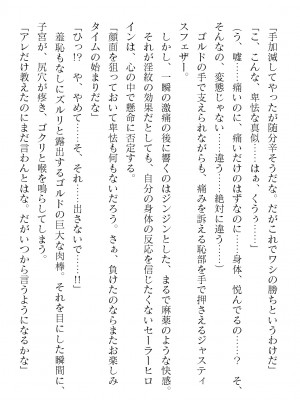 「手加減してやったが随分辛そうだな。だがこれでワシの勝ちというわけだ」
「こ、こんな、卑怯な真似……はぁ、くうぅ……」
（う、嘘……痛いのに、痛いだけのはずなのに……身体、悦んでるの……？　そ、
そんなの、変態じゃない……違う……絶対に違う……）
ゴルドの手で支えられながらも、痛みを訴える恥部を手で押さえるジャスティ
スフェザー。
しかし、一瞬の激痛の後に響くのはジンジンとした、まるで麻薬のような快感。
それが淫紋の効果だとしても、自分の身体の反応を信じたくないセーラーヒロ
インは、心の中で懸命に否定する。
「顔面を狙っておいて卑怯も何もないだろう。さぁ、負けたのならまたお楽しみ
タイムの始まりだな」
「ひっ？　や、やめて……そ、それ……出さないで……!!」
羞恥もなしにズルリと露出するゴルドの巨大な肉棒。それを目にした瞬間に、
子宮が、尻穴が疼き、ゴクリと喉を鳴らしてしまう。
「アレだけ教えたのにまだ言わんとはな。だがいつから言うようになるかな」